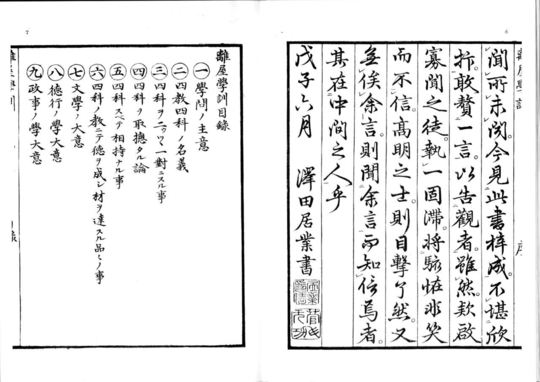 聞所未聞今見此書梓成不堪欣
抃敢贅一言以告觀者。雖然款啟
寡聞之徒執一固滯將駭怪非笑
而不信。高明之士。則目擊了然。又
無俟余言。則聞余言而知信焉者。
其在中間之人乎
戊子六月 澤田居業書
序
7
離屋學訓目録
㊀學問ノ主意
㊁四教四科ノ名義
㊂四科ヲ二ツヽ一對ニスル事
㊃四科ノ取捴タル論
㊄四科スベテ相持ナル事
㊅四科ノ教ニテ德ヲ成シ材ヲ達スル品〻ノ事
㊆文學ノ大意
㊇德行ノ學大意
㊈政事ノ學大意